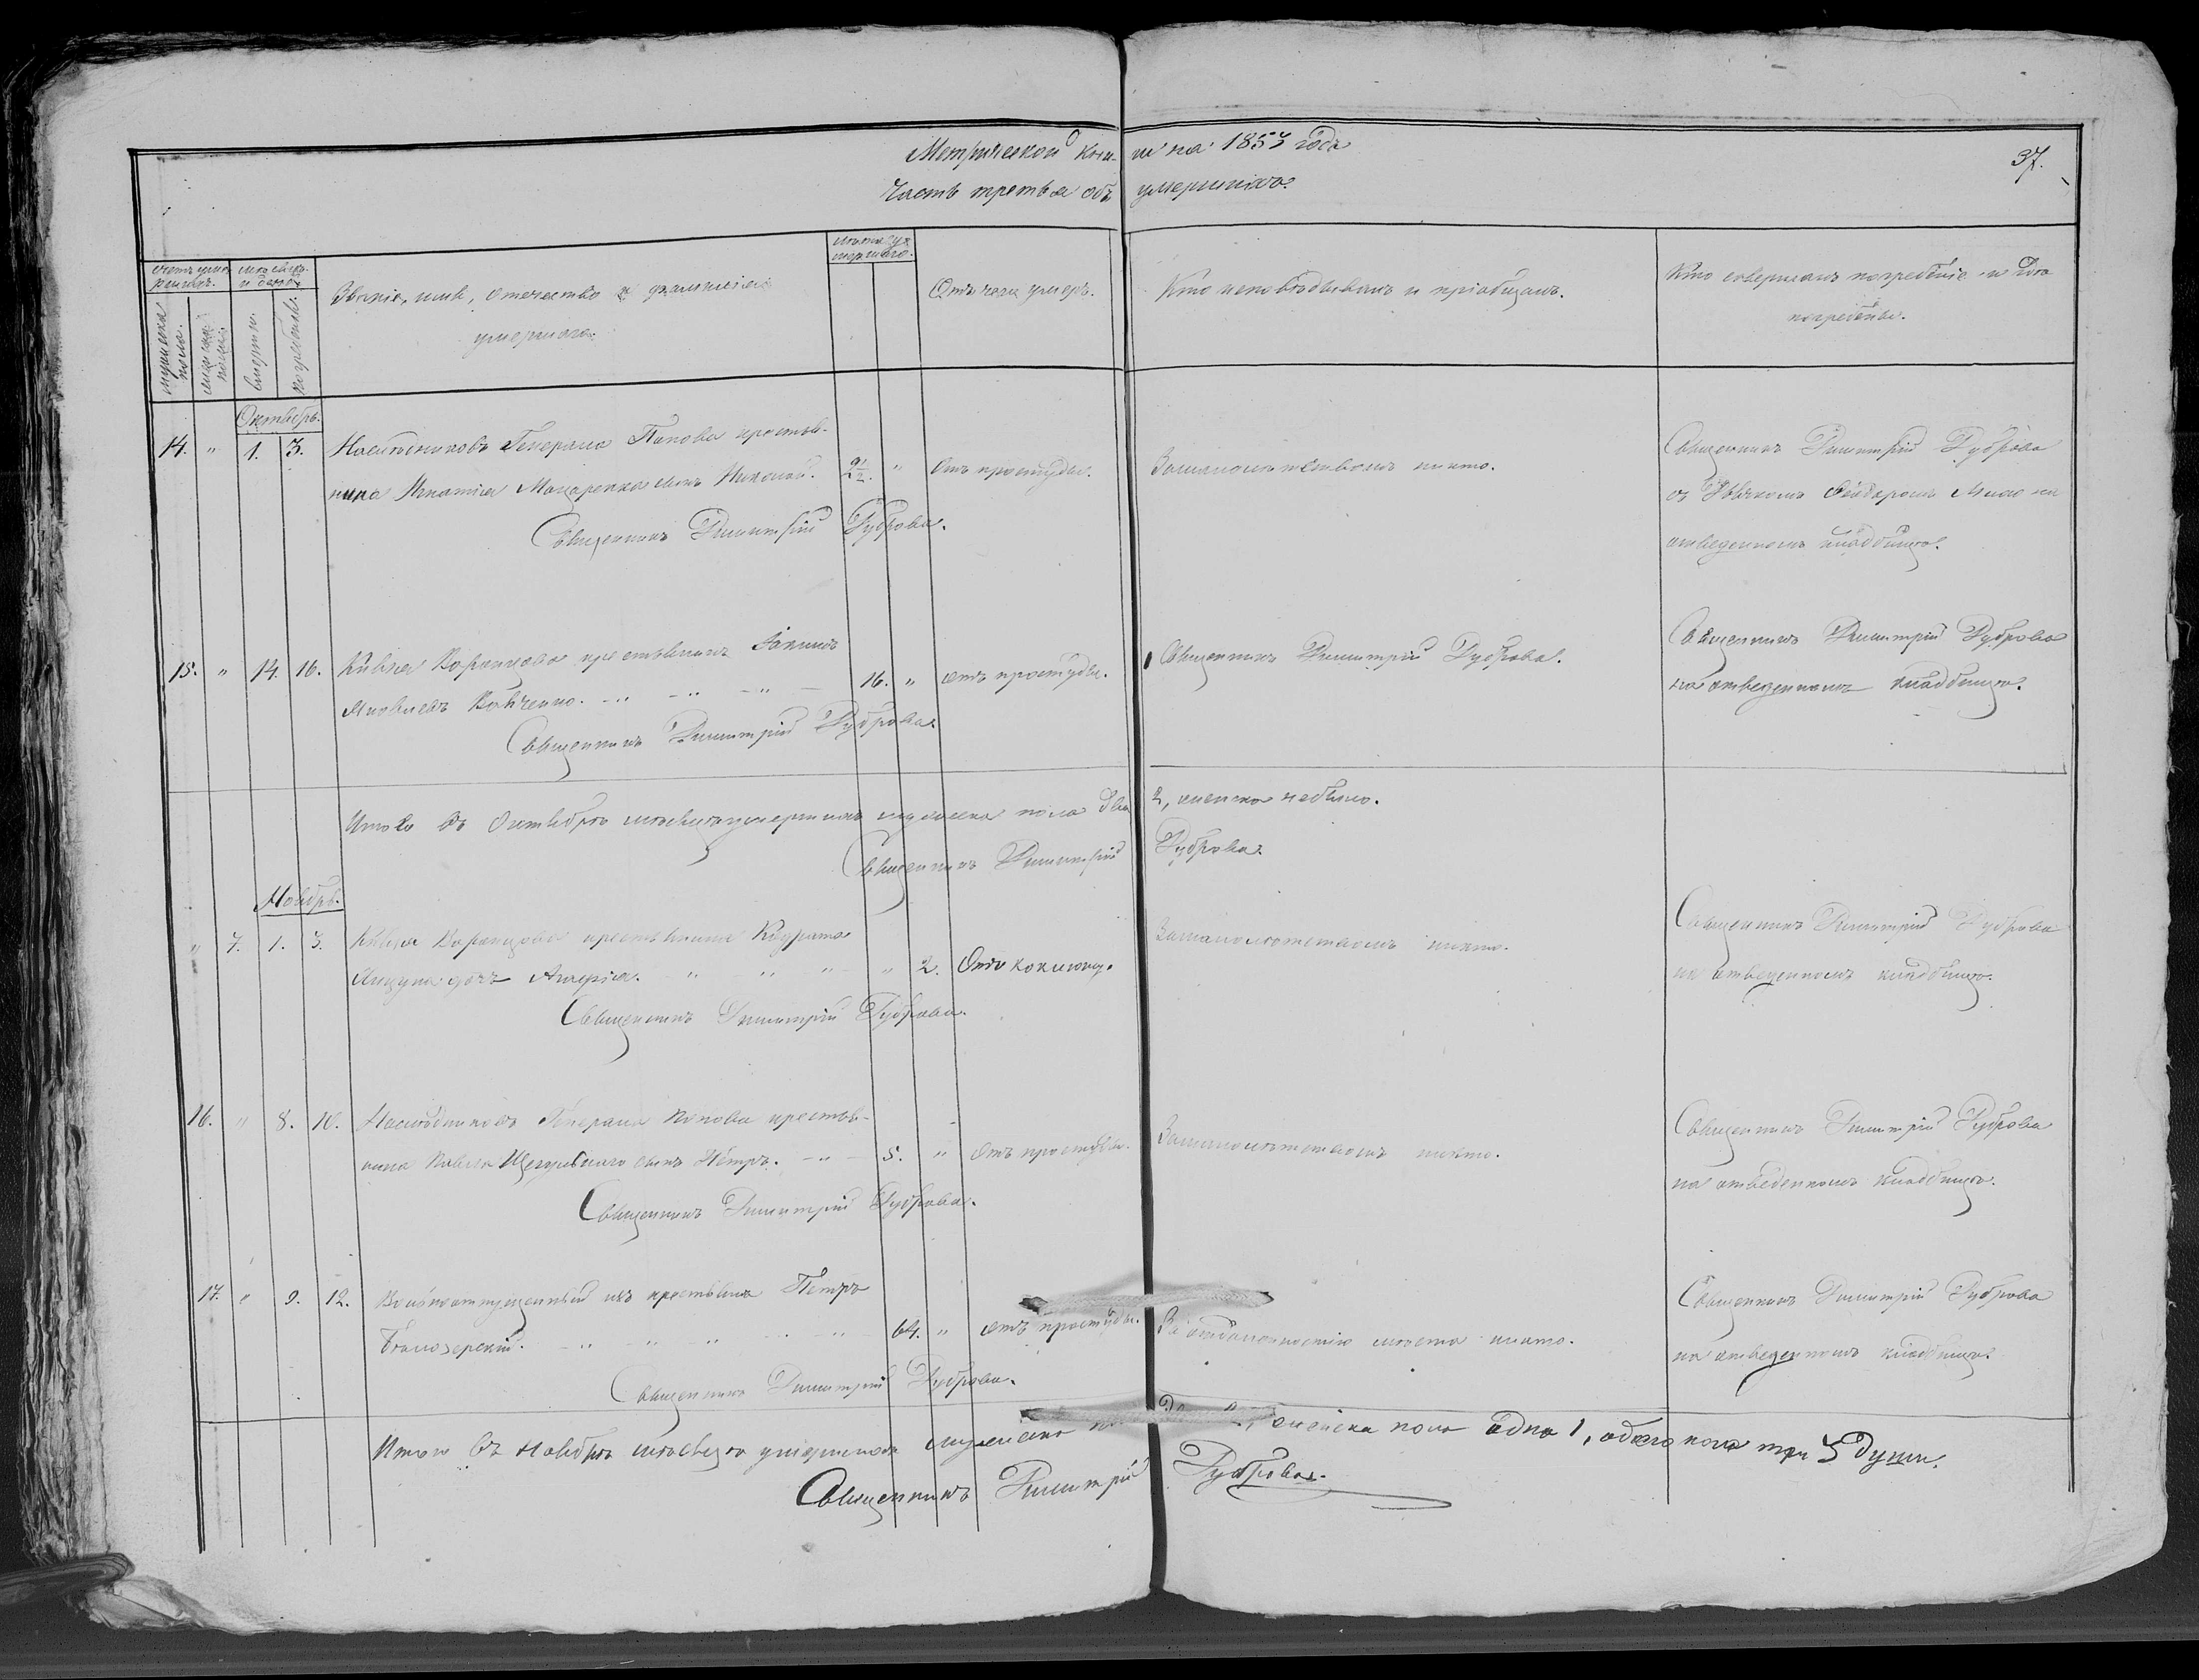 Метрической кни- ги на 1853 годъ
37.
Часть третья объ умершихъ.
Счетъ умершихъ.
мужеска пола.
женска пола.
Мѣсяцъ и день
смерти.
погребенія.
Званіе, имя, отечество и фамилія
умершаго.
Лѣта умершаго.
Отъ чего умеръ.
Кто исповѣдывалъ и пріобщалъ.
Кто совершалъ погребеніе и гдѣ
погребены.
Октябрь.
14. " 1. 3. Наслѣдниковъ Генерала Попова крестья-
нина Игнатія Макаренка сынъ Николай. 2½. " Отъ простуды. За малолѣтствомъ никто.
Священникъ Димитрій Дуброва
съ Дьячкомъ на
отведенномъ кладбищѣ.
Священникъ Димитрій Дуброва.
15. " 14. 16. Князя Воронцова крестьянинъ
Яковлевъ 16. " отъ простуды. Священникъ Димитрій Дуброва.
Священникъ Димитрій Дуброва
на отведенномъ кладбищѣ.
Священникъ Димитрій Дуброва.
Итого въ Октябрѣ мѣсяцѣ умершихъ мужеска пола два 2, женска небыло.
Священникъ Димитрій Дуброва.
Ноябрь.
" 7. 1. 3. Князя Воронцова крестьянина Кодрата
дочь " 2. Отъ коклюшу. За малолѣтствомъ никто.
Священникъ Димитрій Дуброва
на отведенномъ кладбищѣ.
Священникъ Димитрій Дуброва.
16. " 8. 10. Наслѣдниковъ Генерала Попова крестья-
нина Павла сынъ Петръ. 5. " Отъ простуды. За малолѣтствомъ никто.
Священникъ Димитрій Дуброва
на отведенномъ кладбищѣ.
Священникъ Димитрій Дуброва.
17. " 9. 12. Вольноотпущенный изъ крестьянъ Петръ
Бѣлозерскій. 64. " отъ простуды. За отдаленностію мѣста никто.
Священникъ Димитрій Дуброва
на отведенномъ кладбищѣ.
Священникъ Димитрій Дуброва.
Итого въ Ноябрѣ мѣсяцѣ умершихъ мужеска женска пола одна 1, обоего пола три 3 души.
Священникъ Димитрій Дуброва.